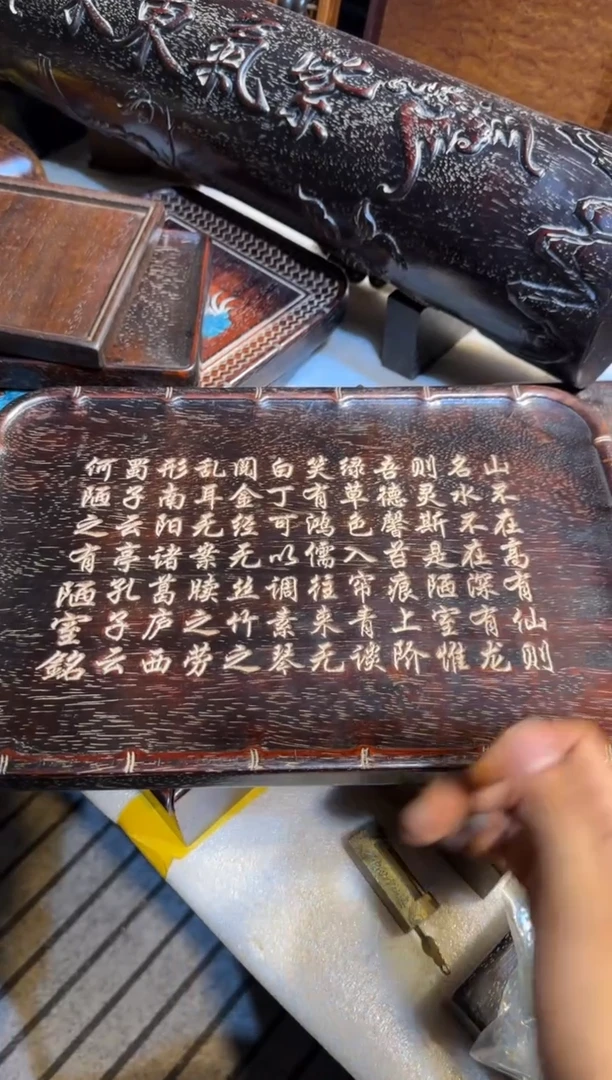 紫氣東
山不在高有仙则
名水不在深有龙
则灵斯是陋室惟
吾德馨苔痕上阶
绿草色入帘青谈
笑有鸿儒往来无
白丁可以调素琴
阅金经无丝竹之
乱耳无案牍之劳
形南阳诸葛庐西
蜀子云亭孔子云
何陋之有陋室銘